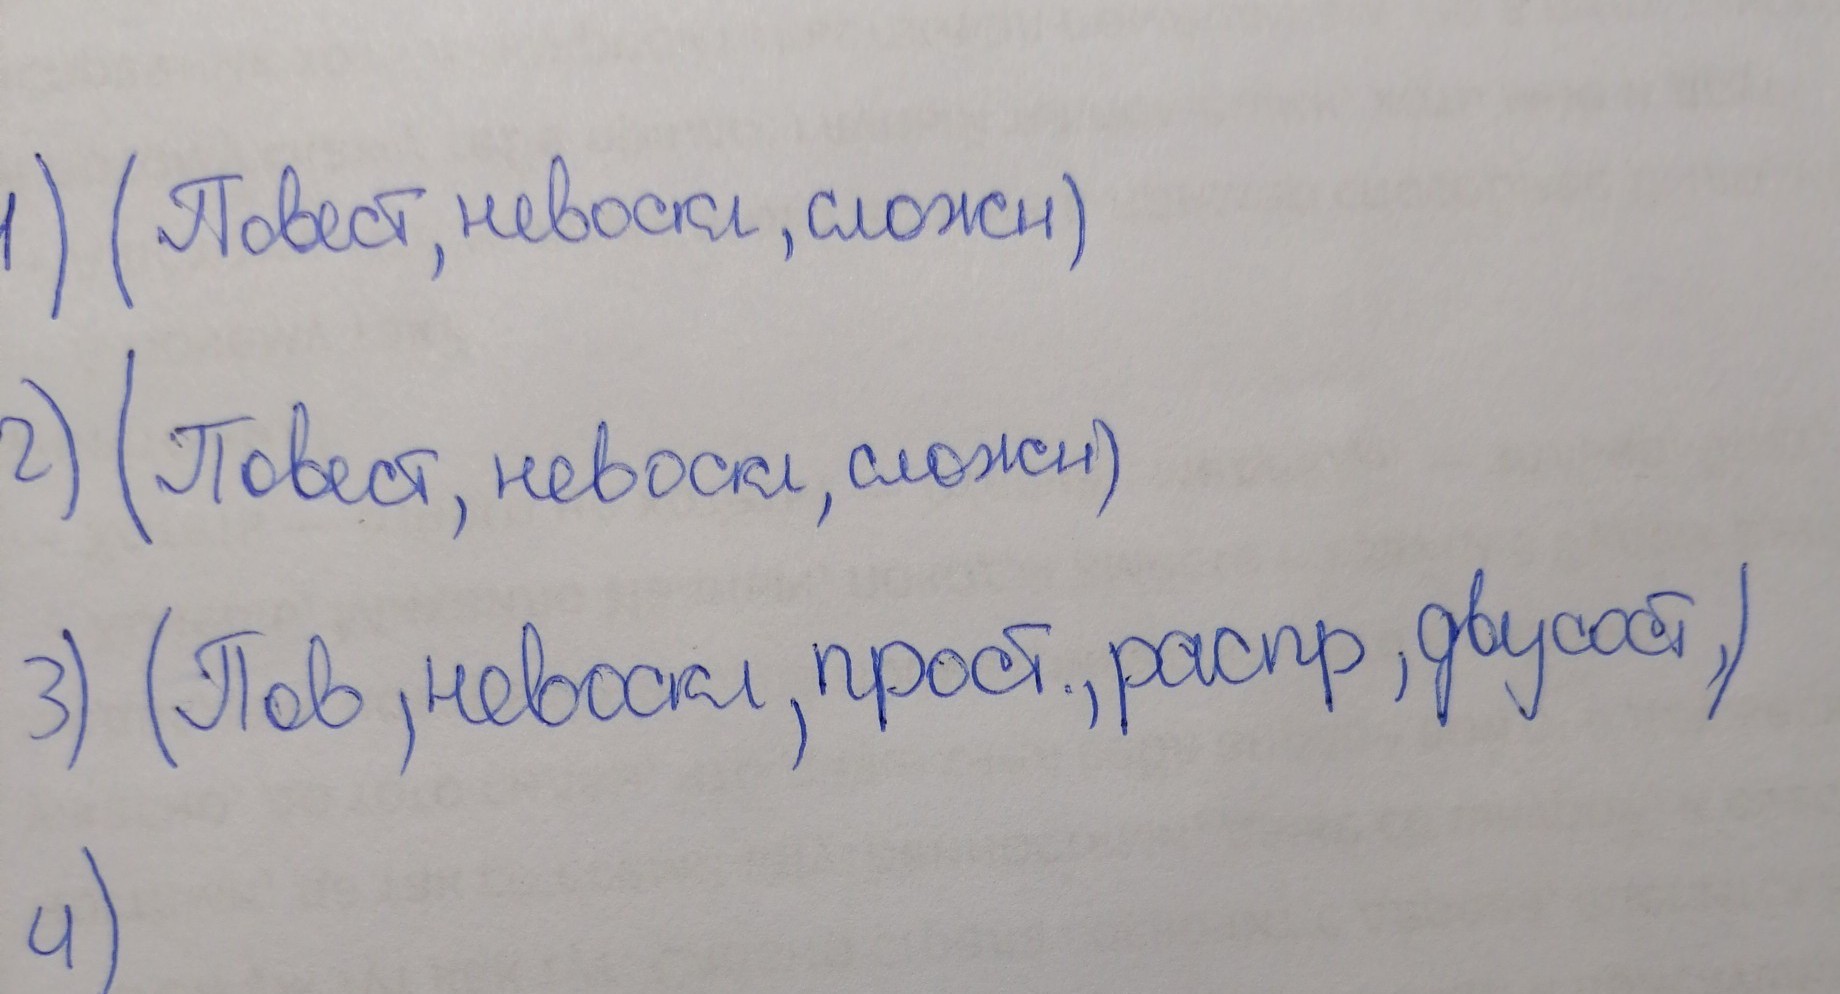 1) (Повест, невоскл, сложн)
2) (Повест, невоскл, сложн)
3) (Пов, невоскл, прост., распр, двусост,)
4)